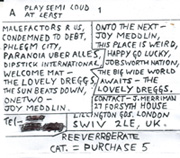 A PLAY SEMI LOUD 1
AT LEAST
MALEFACTORS R US,
CONDEMNED TO DEBT,
PHLEGM CITY,
PARANOIA UBER ALLES,
DIPSTICK INTERNATIONAL,
WELCOME MAT -
THE LOVELY DREGGS,
THE SUN BEATS DOWN,
ONETWO -
JOY MEDLIN.
TEL-
ONTO THE NEXT -
JOY MEDLIN,
THIS PLACE IS WEIRD,
HAPPY GO LUCKY,
JOBSWORTH NATION,
THE BIG WIDE WORLD
AWAITS - THE
LOVELY DREGGS.
CONTACT - J. HERRIMAN
27 FORSYTH HOUSE
LILLINGTON GDS. LONDON
SW1V 2LE, UK.
REEVERRBERATE
CAT. = PURCHASE 5